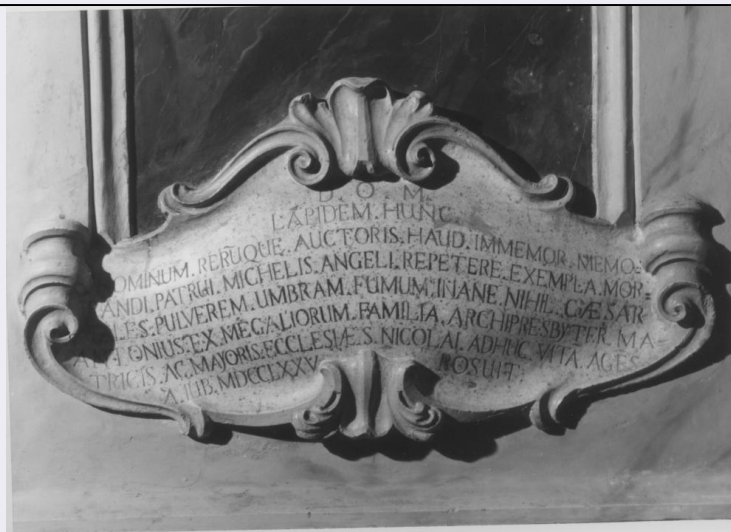 D. O. M.
LAPIDEM. HUNC
OMINUM. RERUQUE. AUCTORIS. HAUD. IMMEMOR. MEMO=
ANDI. PATRUI. MICHELIS. ANGELI. REPETERE. EXEMPLA. MOR=
LES. PULVEREM. UMBRAM. FUMUM. INANE. NIHIL. CÆSAR
ONIUS. EX. MEGALIORUM. FAMILIA. ARCHIPRESBYTER. MA=
TRICIS. AC. MAJORIS. ECCLESIÆ. S. NICOLAI. ADHUC. VITA. AGES
MDCCLXXV OSUIT